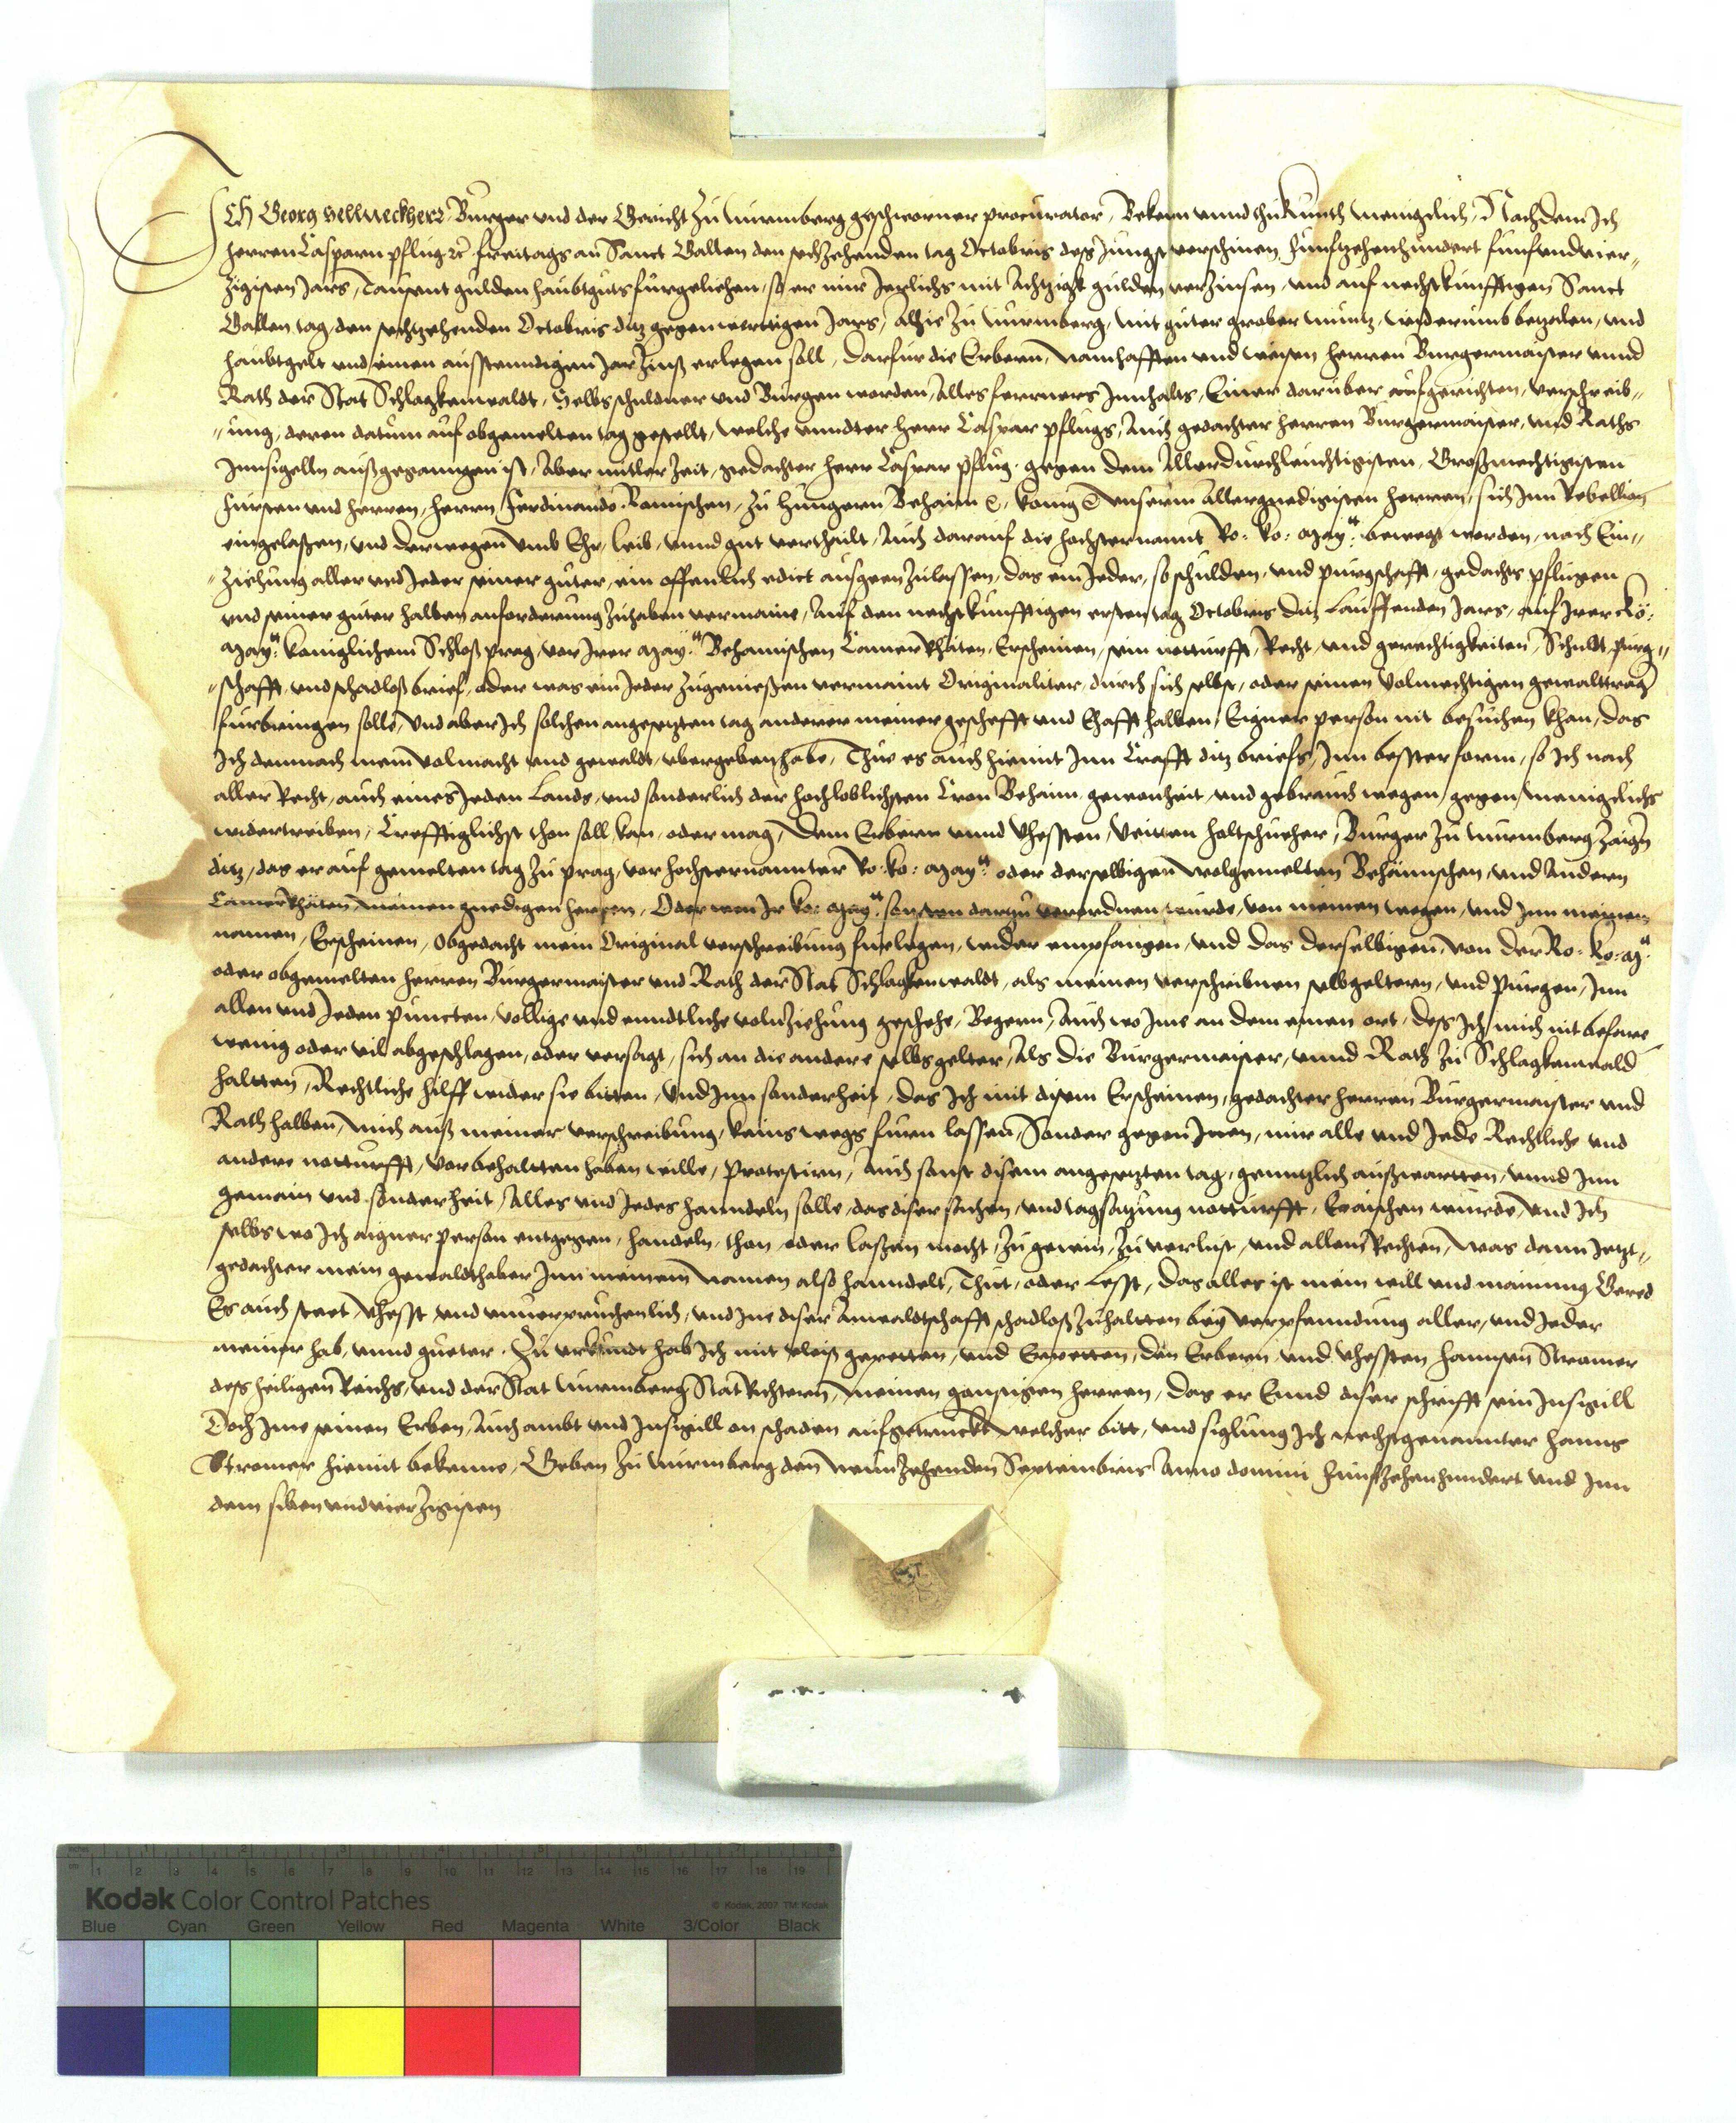 Ich Georg Hellweckherr Burger und der Gericht zu Nurmberg geschworner procurator, Bekenn unnd thu kunth menigclich, Nachdem Ich
herren Casparn pflug etc freitags an Sanct Gallen den sechzehenden tag Octobris des Jungst verschinen, funfzehenhundert funfundvier„
zigisten Jars, Tausent gulden haubtguts furgelichen, so er mir Jerlichs mit Achtzigkh gulden verzinsen, und auf nechstkunfftigen Sanct
Gallen tag, den sechzehenden Octobris ditz gegenwertigen Jars, alhie zu Nurmberg, mit guter grober muntz, widerumb bezalen, und
haubtgelt und einen ausstenndigen Jar Zinß erlegen soll, Darfur die Erbern, Namhafften und weisen herren Burgermaister unnd
Rath der Stat Schlagkenwaldt, Selbschuldner und Burgen worden, Alles ferrners Jnnhalts, Einer daruber aufgerichten, verschreib„
„ung, deren datum auf obgemelten tag gestellt, welche unndter herr Caspar pflugs, Auch gedachter herren Burgermaister, und Raths
Jnnsigelln außgegangen ist, Aber mitler Zeit, gedachter herr Caspar pflug, gegen dem Allerdurchleuchtigisten, Großmechtigisten
fursten und herren, herrn Ferdinando Romischen, zu Hungern Behaim etc, konig etc unserm allergnedigisten herren, sich Jnn Rebellion
eingelaßen, und derwegen umb Ehr, leib, unnd gut verthailt, Auch darauf die hochsternannt Ro: ko: Mayt: bewegt worden, nach Ein„
„ziehung aller und Jeder seiner guter, ein offenlich edict ausgeen zulassen, das ein Jeder, so schulden, und purgschafft, gedachts pflugen
und seiner guter halben anforderung zuhaben vermaine, Auf den nechstkunfftigen ersten tag Octobris ditz Lauffenden Jars, auf Jrer Ro:
Mayt: koniglichem Schloß prag, vor Jrer Mayt: Behemischen Camer Rhäten, Erscheinen, sein notturfft, Recht, und gerechtigkeiten, Schuldt, purg„
„schafft, und schadloß brief, oder was ein Jeder zugenießen vermaint Originaliter, durch sich selbs, oder seinen Volmechtigen gewalttrag
furbringen solle, Und aber Ich solchen angesetzten tag anderer meiner geschefft und Ehafft halben, Eigner person nit besuchen khan, das
Ich demnach mein Volmacht und gewaldt, ubergeben habe, Thue es auch hiemit Jnn Crafft ditz briefs, Jnn bester form, so Ich nach
aller Recht, auch eines Jeden Lands, und sonderlich der hochloblichsten Cron Behaim gewonheit, und gebrauch wegen, gegen menigclichs
widertreiben, Crefftiglichst thon soll, kan, oder mag, Dem Erbern unnd Vhessten, Veitten Holtschucher, Burger zu Nurmberg Zaigern
ditz, das er auf gemelten tag zu prag, vor hochsternannter Ro: ko: Mayt: oder derselbigen Wolgemelten Behaimschen, und Andern
Camer Rhäten, meinen gnedigen herren, Oder wen Jr ko: Mayt: sonsten darzu verordnen wurde, von meinen wegen, und Jnn meinem
namen, Erscheinen, obgedacht mein Original verschreibung furlegen, wider empfangen, und das derselbigen, von der Ro: ko: Mt:
oder obgemelten herren Burgermaister und Rath der Stat Schlagkenwaldt, als meinen verschribnen selbgeltern, und Purgen, Jnn
allen und Jeden puncten, Vollige und enndtliche volnziehung geschehe, Begern, Auch wo Jme an dem einen ort, dess Ich mich nit befare
wenig oder vil abgeschlagen, oder versagt, sich an die andere selbsgelter, Als die Burgermeister, unnd Rath zu Schlagkenwald
haltten, Rechtliche hilff wider sie bitten, Und Jnn sonderheit, das Ich mit disem Erscheinen, gedachter herren Burgermaister und
Rath halben, mich auß meiner verschreibung, keins wegs furn lassen, Sonder gegen Jnen, mir alle und Jede Rechtliche und
andere notturfft, vorbehaltten haben wille, protestirn, Auch sonst disem angesetzten tag, genntzlich außwartten, unnd Jnn
gemein und sonderheit, Alles und Jedes hanndeln solle, das diser sachen, und tagsatzung notturfft, Eraischen wurde, und Ich
selbs wo Ich aigner person entgegen, handeln, thon, oder laßen mocht, zu gewin, zu verlust, und allen Rechten, Was dann Jetzt„
gedachter mein gewaldthaber Jnn meinem Namen also hanndelt, Thut, oder Lesst, Das alles ist mein will und mainung, Gered
Es auch steet, Vhesst, und unuerpruchenlich, und Jne diser Anwaldtschafft schadloß zuhaltten bey verpfenndung aller, und Jeder
meiner hab, unnd gueter. Zu urkundt hab Ich mit vleiß gepetten, und Erpetten, den Erbern und Vhessten Hannsen Stromer
dess heiligen Reichs, und der Stat Nurmberg Stat Richtern, Meinen gonstigen herren, das er Ennd diser schrifft sein Jnsigill
Doch Jme seinen Erben, Auch ambt und Jnsigill on schaden aufgetruckt Welcher bitt, und siglung Ich nechstgenannter Hanns
Stromer hiemit bekenne, Geben zu Nurmberg den Neunzehenden Septembris Anno domini, Funffzehenhundert und Jnn
dem siben und vierzigisten
Kodak Color Control Patches
© Kodak, 2007 TM: Kodak
Blue Cyan Green Yellow Red Magenta White 3/Color Black